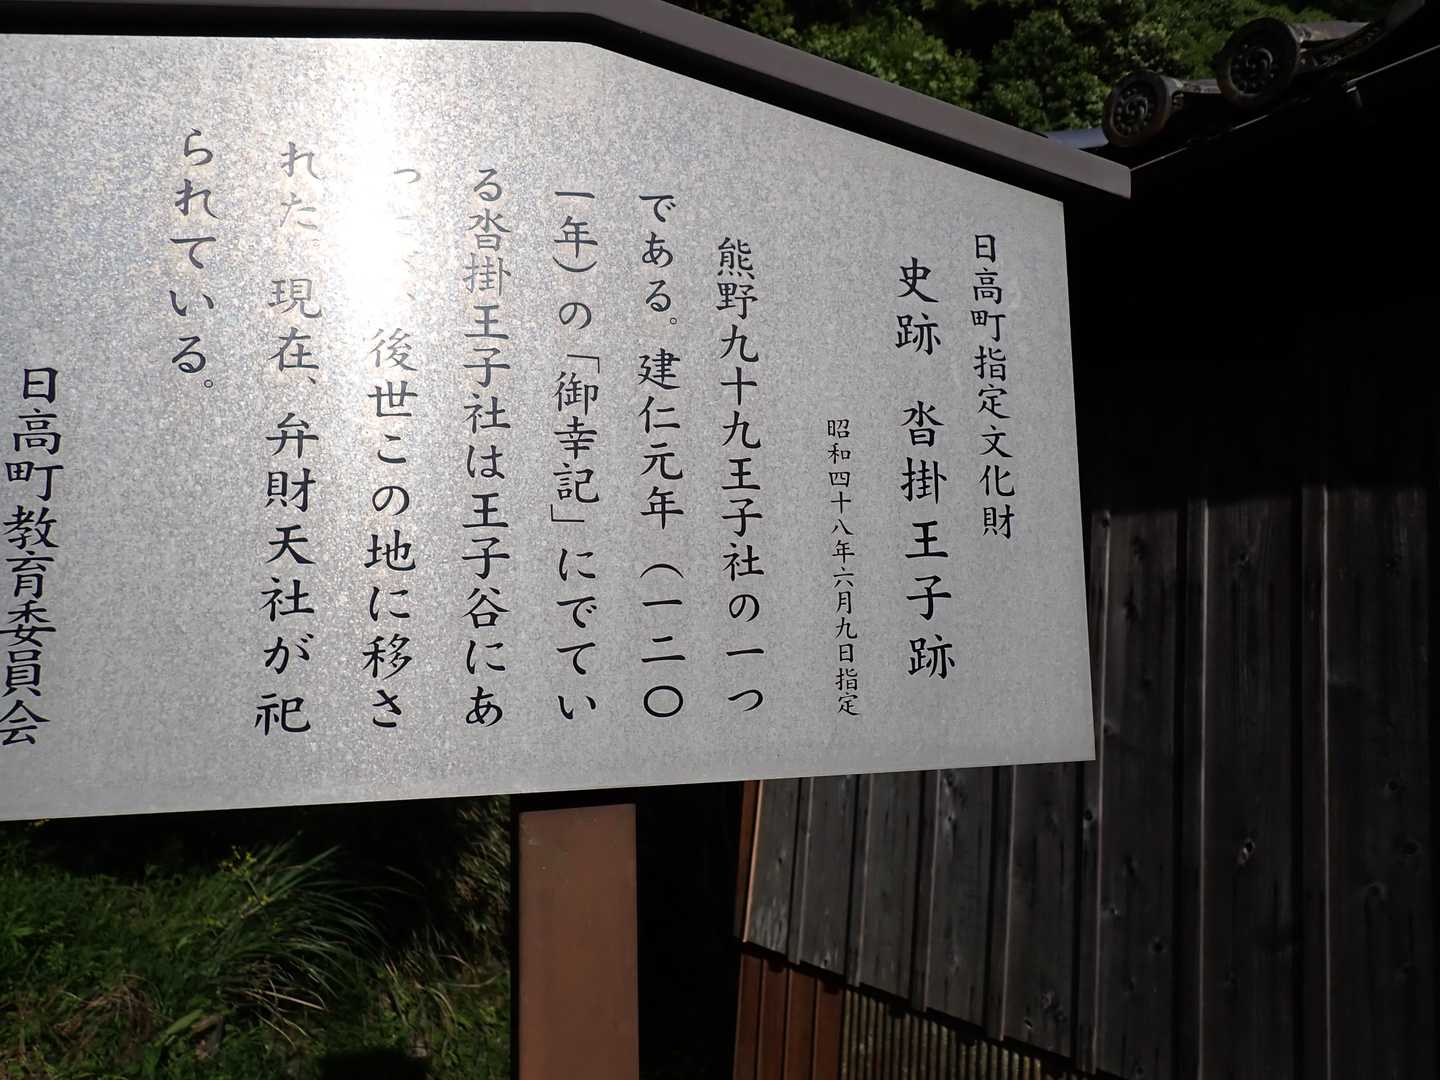 日高町指定文化財
史跡 沓掛王子跡
昭和四十八年六月九日指定
熊野九十九王子社の一つ
である。建仁元年(一二〇
一年)の「御幸記」にでてい
る沓掛王子社は王子谷にあ
っ 、後世この地に移さ
れた。現在、弁財天社が祀
られている。
日高町教育委員会